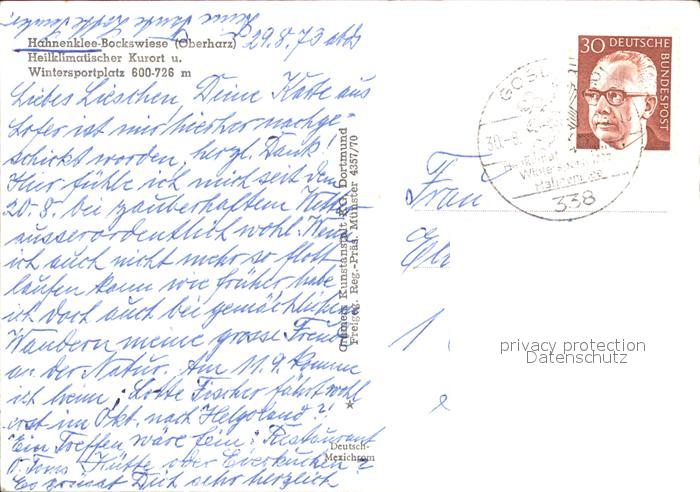 Hahnenklee-Bockswiese (Oberharz)
Heilklimatischer Kurort u.
Wintersportplatz 600-726 m
29.8.73 abds
Liebes Lieschen, Deine Karte aus
Lofer ist mir hierher nachge-
schickt worden, herzl. Dank!
Hier fühle ich mich seit dem
20.8. bei zauberhaftem Wetter
ausserordentlich wohl. Wenn
ich auch nicht mehr so flott
laufen kann wie früher, habe
ich doch auch bei gemächlichem
Wandern meine grosse Freude
an der Natur. Am 11.9. komme
ich heim. Lotte Fischer fährt wohl
erst im Okt. nach Helgoland?!
Ein Treffen wäre fein: Restaurant
Hütte oder Eierkuchen?
Es grüsst Dich sehr herzlich
Cramers Kunstanstalt KG, Dortmund
Freigeg. Reg.-Präs. Münster 4357/70
Deutsch-
Mexichrom
30 DEUTSCHE
BUNDESPOST
GOSL
30.-8.
Hahnenklee
338
Frau
1
privacy protection
Datenschutz